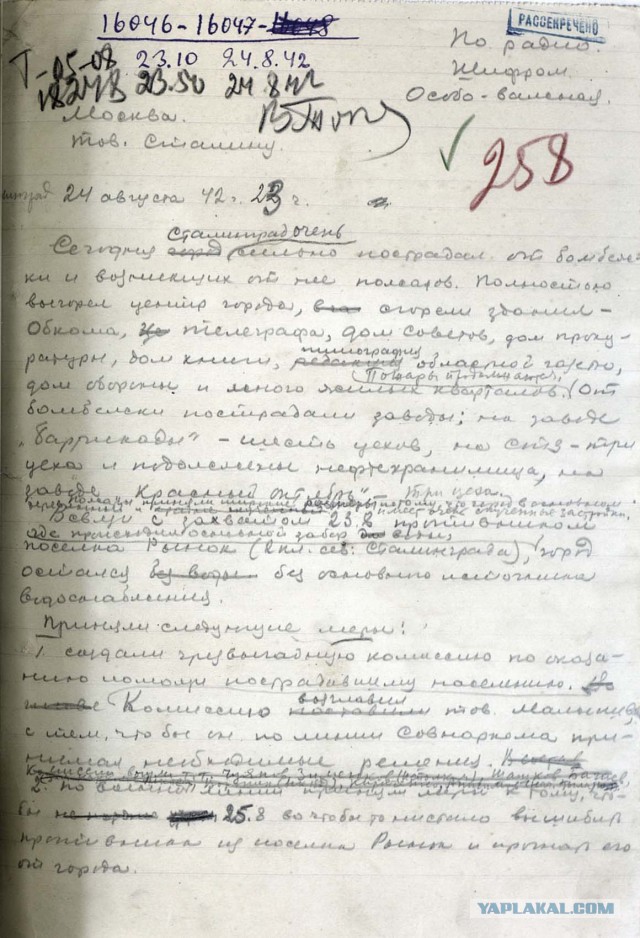 16046-16047-16048
РАССЕКРЕЧЕНО
Т-05-08 23.10 24.8.42
По радио.
Шифром.
23.50 24.8.42
Особо-важная
Москва.
тов. Сталину.
258
24 августа 42 г. 23 ч.
Сталинград очень
Сегодня город сильно пострадал от бомбеж-
ки и возникших от нее пожаров. Полностью
выгорел центр города, сгорели здания -
Обкома, телеграфа, дом советов, дом проку-
ратуры, дом книги,
типография
областной газеты,
Пожары продолжаются.
дом обороны и много жилых кварталов. От
бомбежки пострадали заводы: на заводе
"Баррикады" - шесть цехов, на СТЗ - три
цеха и подожжены нефтехранилища, на
заводе "Красный октябрь" три цеха.
В связи с захватом 23.8 противником
поселка Рынок (2 км. сев. Сталинграда), город
где происходил основной забор воды,
остался без воды без основного источника
водоснабжения.
Приняли следующие меры:
1. создали чрезвычайную комиссию по оказа-
нию помощи пострадавшему населению.
возглавил
Комиссию поставили тов. Малышев,
с тем, что бы он по линии Совнаркома при-
нимал необходимые решения.
2. по военной линии приняли меры к тому, что-
бы 25.8 во что бы то ни стало вышибить
противника из поселка Рынок и прогнать его
от города.
YAPLAKAL.COM